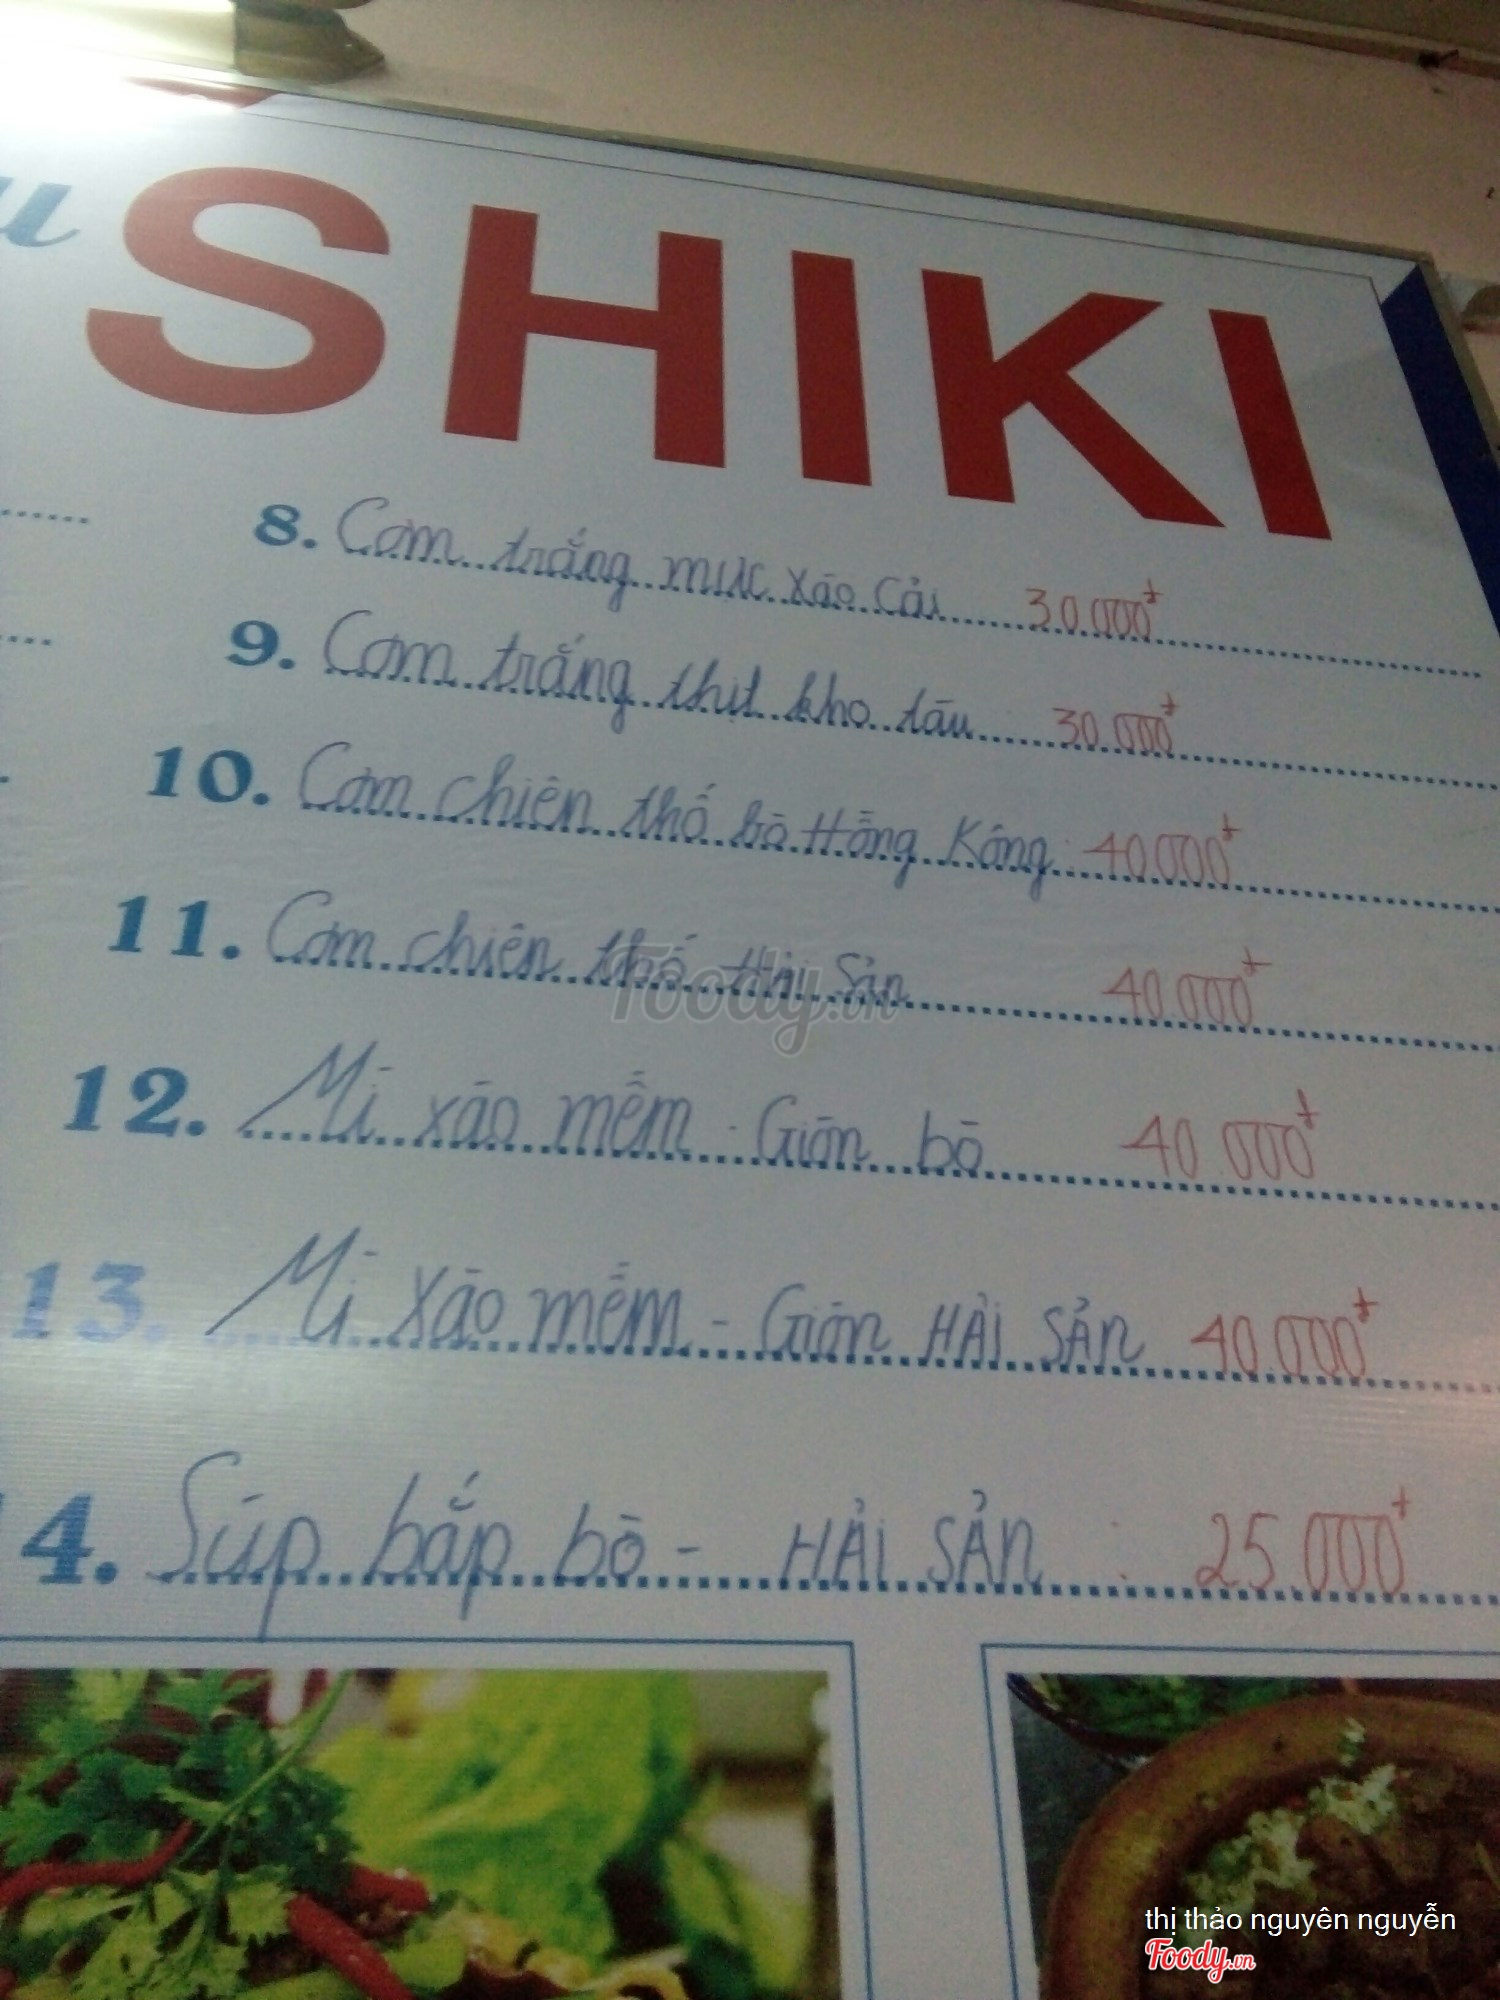 SHIKI
8. Cơm trắng mực xào cải 30.000đ
9. Cơm trắng thịt kho tàu 30.000đ
10. Cơm chiên thố bò Hồng Kông : 40.000đ
11. Cơm chiên thố Hải Sản 40.000đ
12. Mì xào mềm - Giòn bò 40.000đ
13. Mì xào mềm - Giòn HẢI SẢN 40.000đ
14. Súp bắp bò - HẢI SẢN : 25.000đ
Foody.vn
thị thảo nguyên nguyễn
Foody.vn